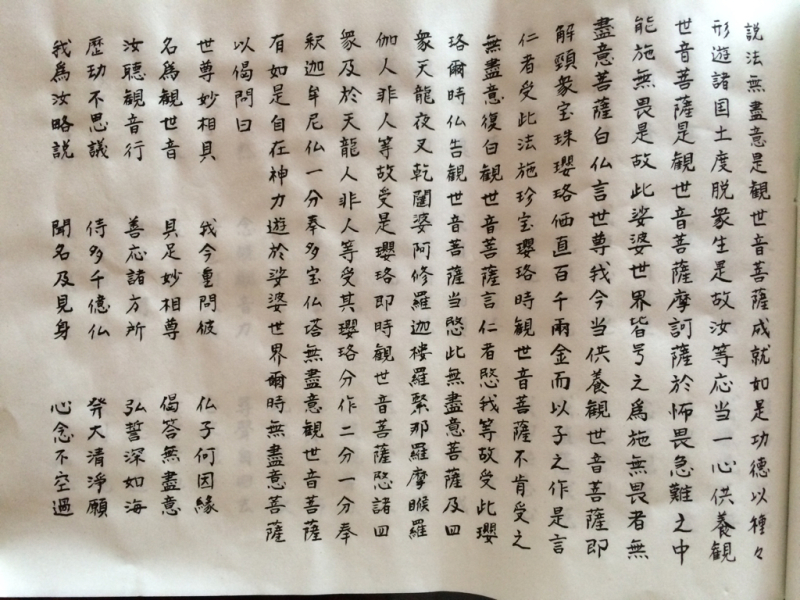 説法無盡意是観世音菩薩成就如是功徳以種々
形遊諸国土度脱衆生是故汝等応当一心供養観
世音菩薩是観世音菩薩摩訶薩於怖畏急難之中
能施無畏是故此娑婆世界皆号之為施無畏者無
盡意菩薩白仏言世尊我今当供養観世音菩薩即
解頸衆宝珠瓔珞価直百千両金而以予之作是言
仁者受此法施珍宝瓔珞時観世音菩薩不肯受之
無盡意復白観世音菩薩言仁者愍我等故受此瓔
珞爾時仏告観世音菩薩当愍此無盡意菩薩及四
衆天龍夜叉乾闥婆阿修羅迦楼羅緊那羅摩睺羅
伽人非人等故受是瓔珞即時観世音菩薩愍諸四
衆及於天龍人非人等受其瓔珞分作二分一分奉
釈迦牟尼仏一分奉多宝仏塔無盡意観世音菩薩
有如是自在神力遊於娑婆世界爾時無盡意菩薩
以偈問曰
世尊妙相具 我今重問彼 仏子何因縁
名為観世音 具足妙相尊 偈答無盡意
汝聴観音行 善応諸方所 弘誓深如海
歴劫不思議 侍多千億仏 発大清浄願
我為汝略説 聞名及見身 心念不空過